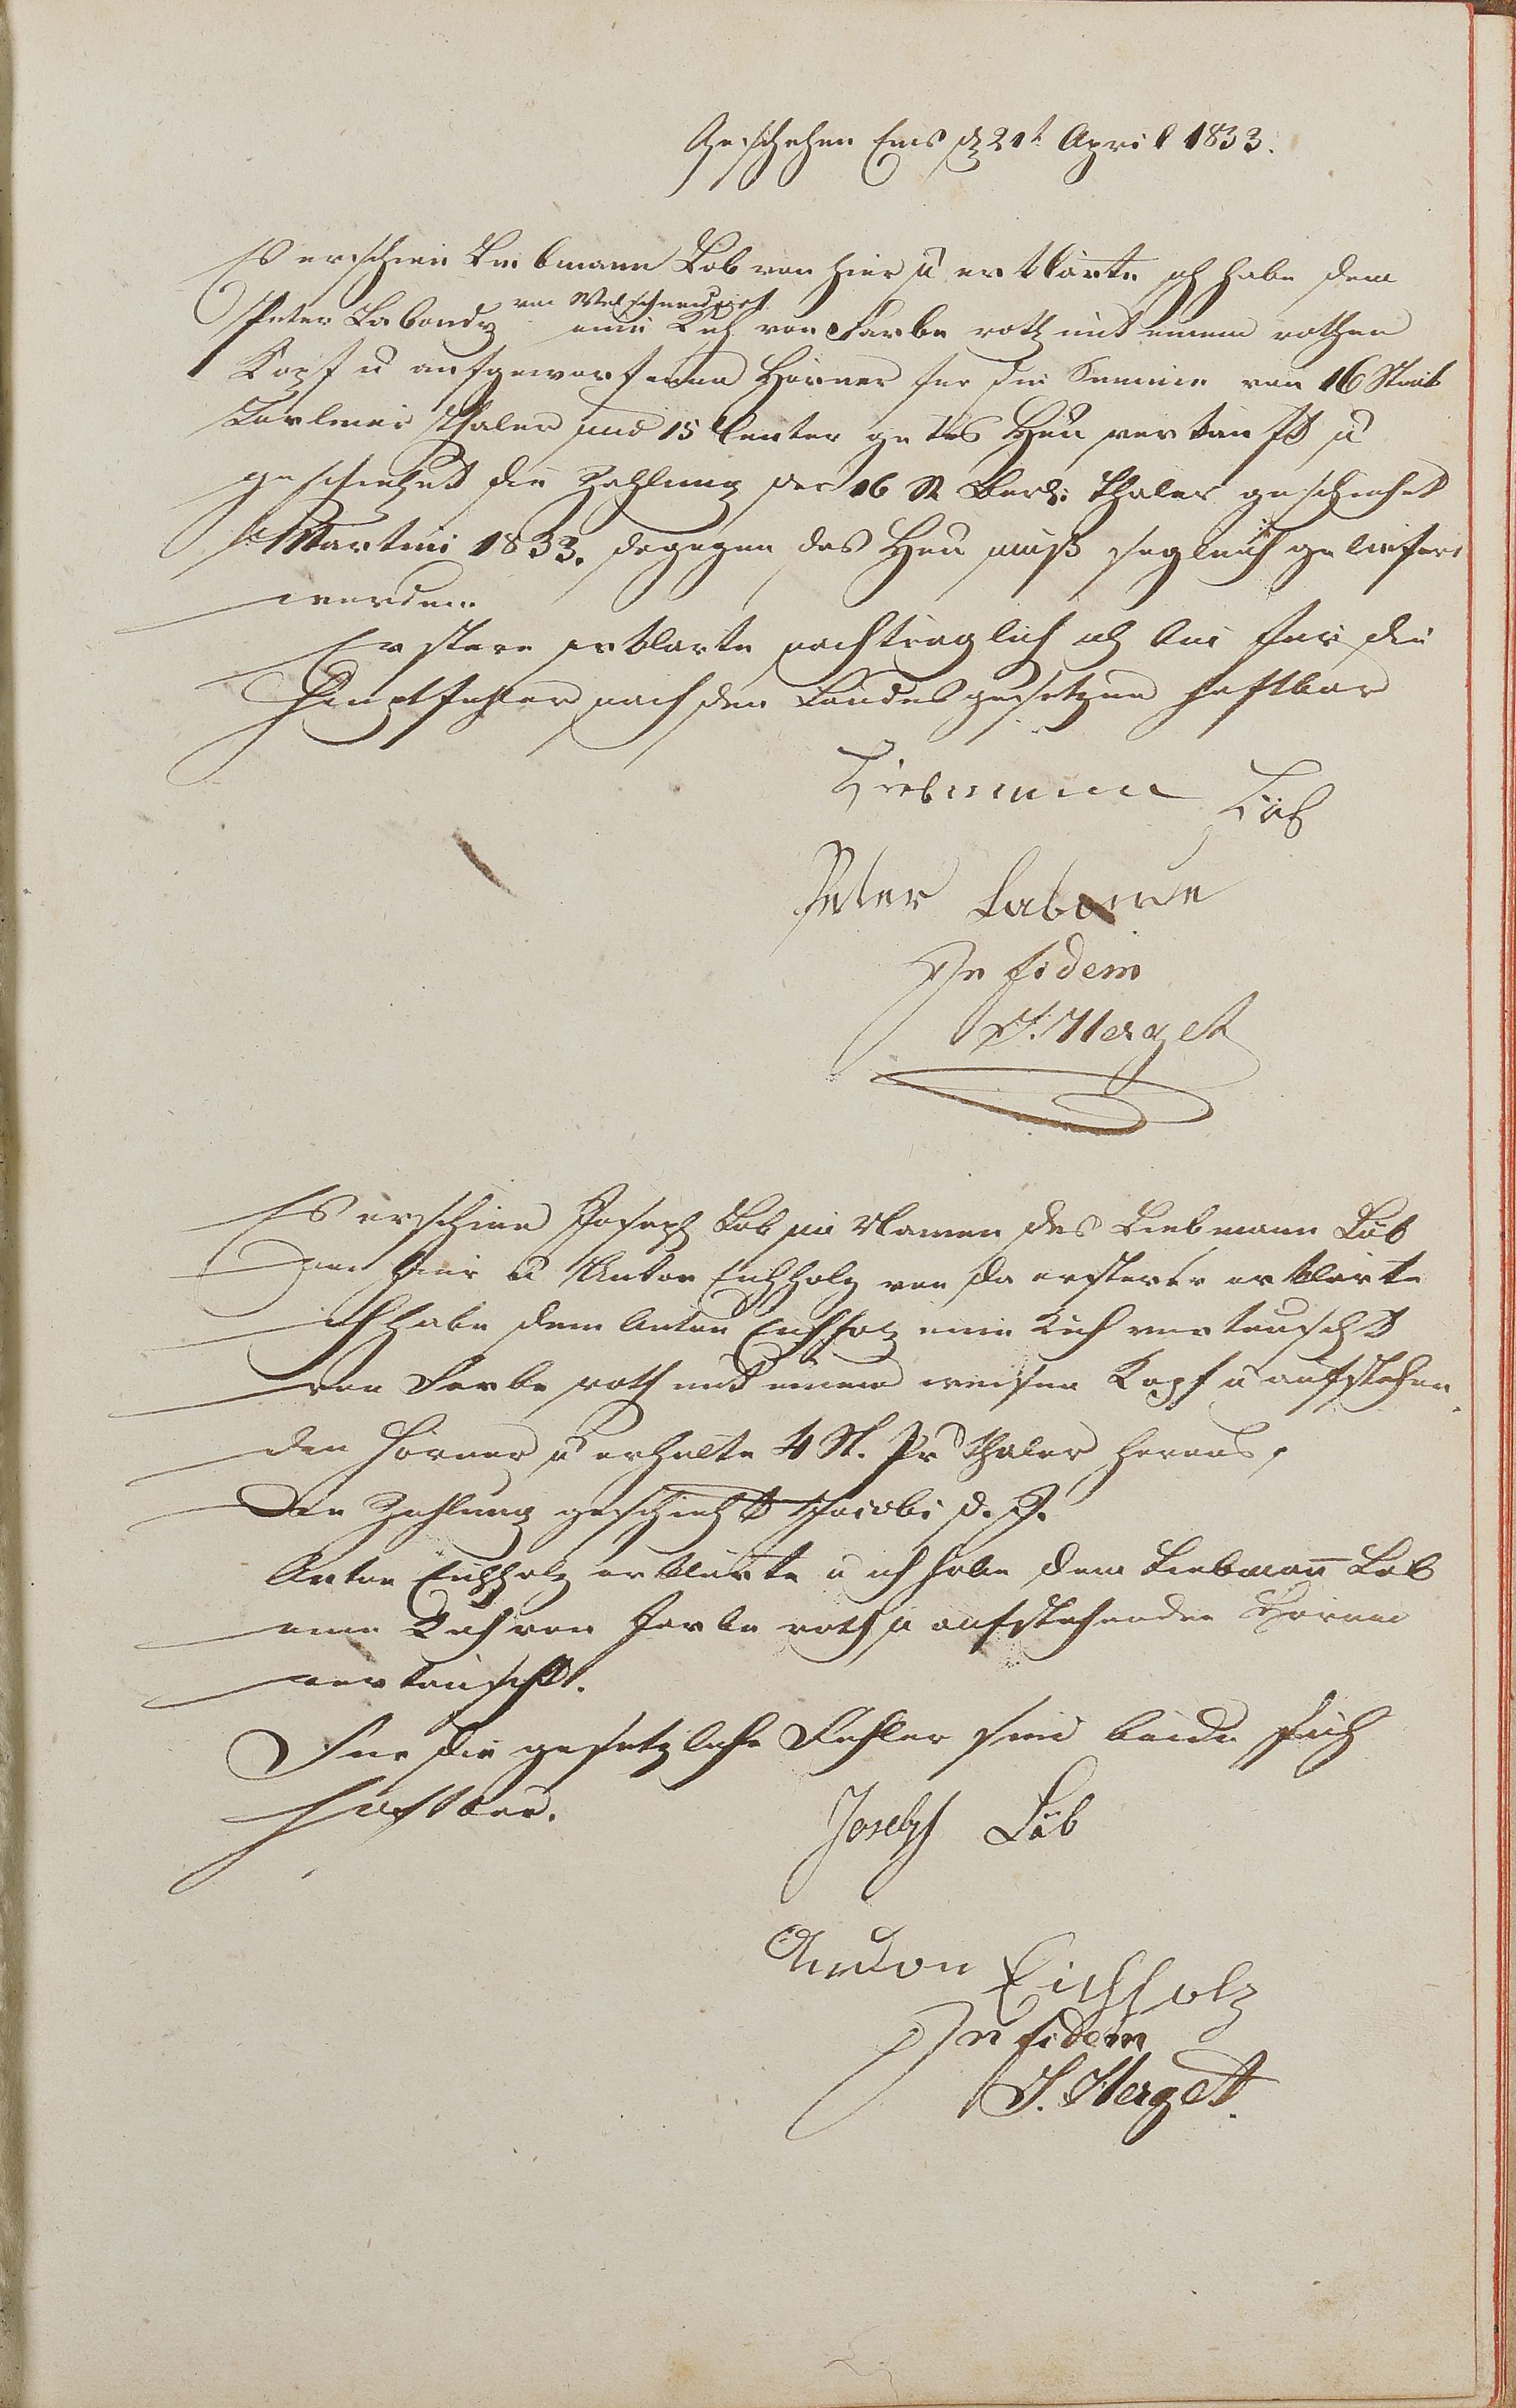 Geschehen Ems d 21t April 1833.
Es erschien Liebmann Löb von hier u erklärte ich habe dem
von Welschneudorf
Peter Labondz eine Kuh von Farbe roth mit einem rothen
Kopf u aufgeworfenen Hörner fur die Summe von 16 Stück
Berliner Thaler und 15 Center gutes Heu verkauft u
geschiehet die Zahlung der 16 St Berl: Thaler geschiehet
Martini 1833. dagegen das Heu muß sogleich geliefert
werden
Erstere erklarte nachtraglich ich bin fur die
Hauptfehler nach den Landesgesetzen haftbar
Liebmann Löb
Peter Labonde
In fidem
J. Herget
Es erschien Joseph Löb im Namen des Liebmann Löb
von hier u Anton Eichholz von da ersterer erklärte
ich habe dem Anton Eichholz eine Kuh vertauscht
von Farbe roth mit einem weisen Kopf u aufstehen
den Hörner u erhalte 4 St. Pr Thaler heraus,
Die Zahlung geschieht Jacobi d. J.
Anton Eichholz erklärte u ich habe dem Liebman̄ Löb
eine Kuh von Farbe roth u aufstehenden Hörner
vertauscht.
Fur die gesetzliche Fehler sind beide sich
haftbar.
Joseph Löb
Andon Eichholz
In fidem
J. Herget.